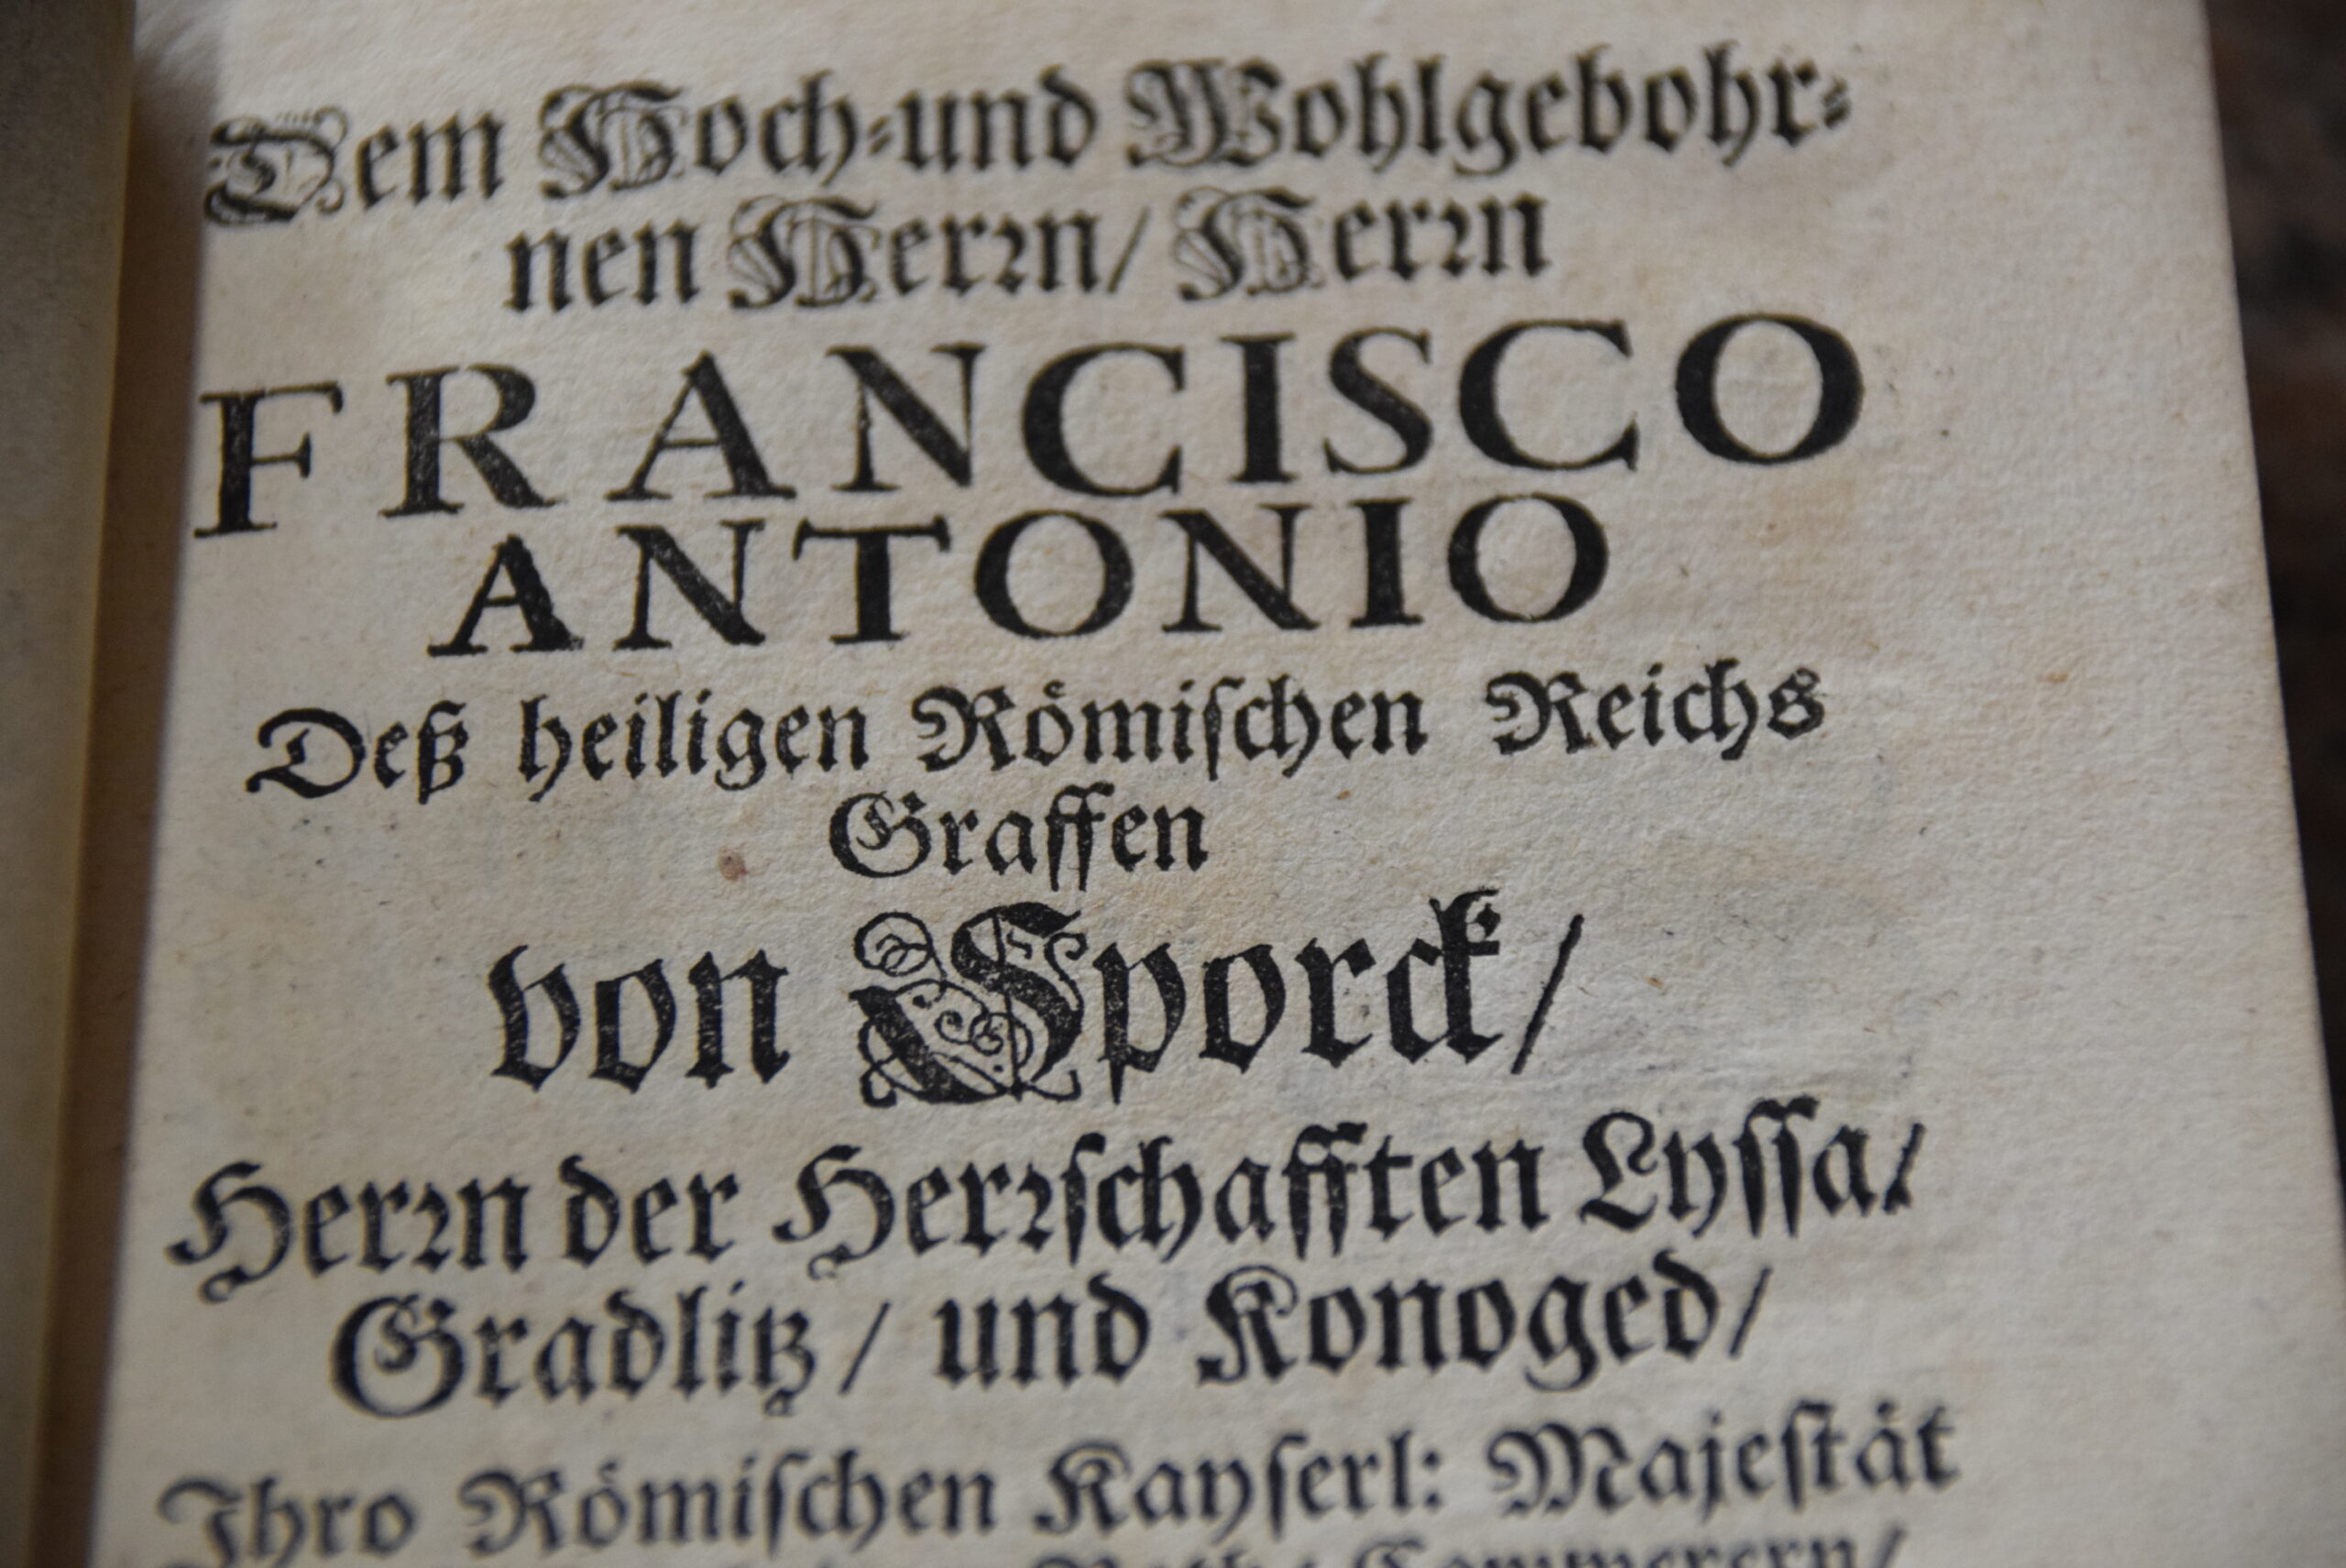 Dem Hoch-und Wohlgebohr-
nen Herꝛn/ Herꝛn
FRANCISCO
ANTONIO
Deß heiligen Römiſchen Reichs
Graffen
von Sporck/
Herꝛn der Herꝛſchafften Lyſſa/
Gradlitz/ und Konoged/
Ihro Römiſchen Kayſerl: Majeſtät